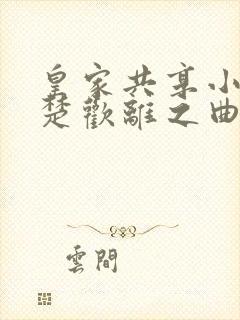 皇家共享小
楚歡離之曲
雲間